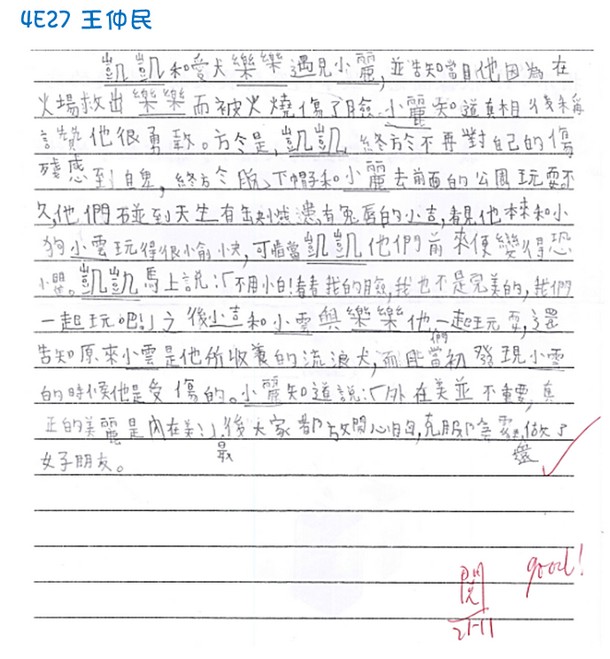 4E27 王仲民
凱凱和愛犬樂樂遇見小麗,並告知當日他因為在
火場救出樂樂而被火燒傷了臉。小麗知道真相後稱
讚他很勇敢。於是,凱凱終於不再對自己的傷
殘感到自卑,終於脫下帽子和小麗去前面的公園玩耍不
久,他們碰到天生有缺憾患有兔唇的小吉,看見他本來和小
狗小雲玩得很愉快,可惜當凱凱他們前來便變得恐
懼。凱凱馬上說:「不用小白!看看我的臉,我也不是完美的,我們
一起玩吧!」之後小吉和小雲與樂樂他們一起玩耍,還
告知原來小雲是他所收養的流浪犬,而且當初發現小雲
的時候他是受傷的。小麗知道說:「外在美並不重要,真
正的美麗是內在美!」最後大家都放開心胸,克服陰霾,做了
好朋友。
good!
閱
21-11